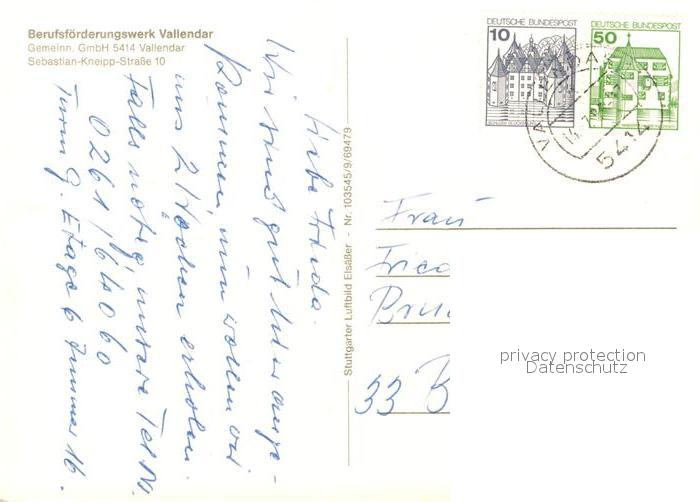 Berufsförderungswerk Vallendar
Gemeinn. GmbH 5414 Vallendar
Sebastian-Kneipp-Straße 10
Liebe Frida.
Wir sind gut hier ange-
kommen, nun wollen wir
uns 2 Wochen erholen.
Falls nötig, unsere Tel Nr.
0261/64060
Turm 9. Etage 6 Zimmer 16.
Stuttgarter Luftbild Elsäßer - Nr. 103545/9/69479
DEUTSCHE BUNDESPOST
10
DEUTSCHE BUNDESPOST
50
5414
Frau
33 B
privacy protection
Datenschutz